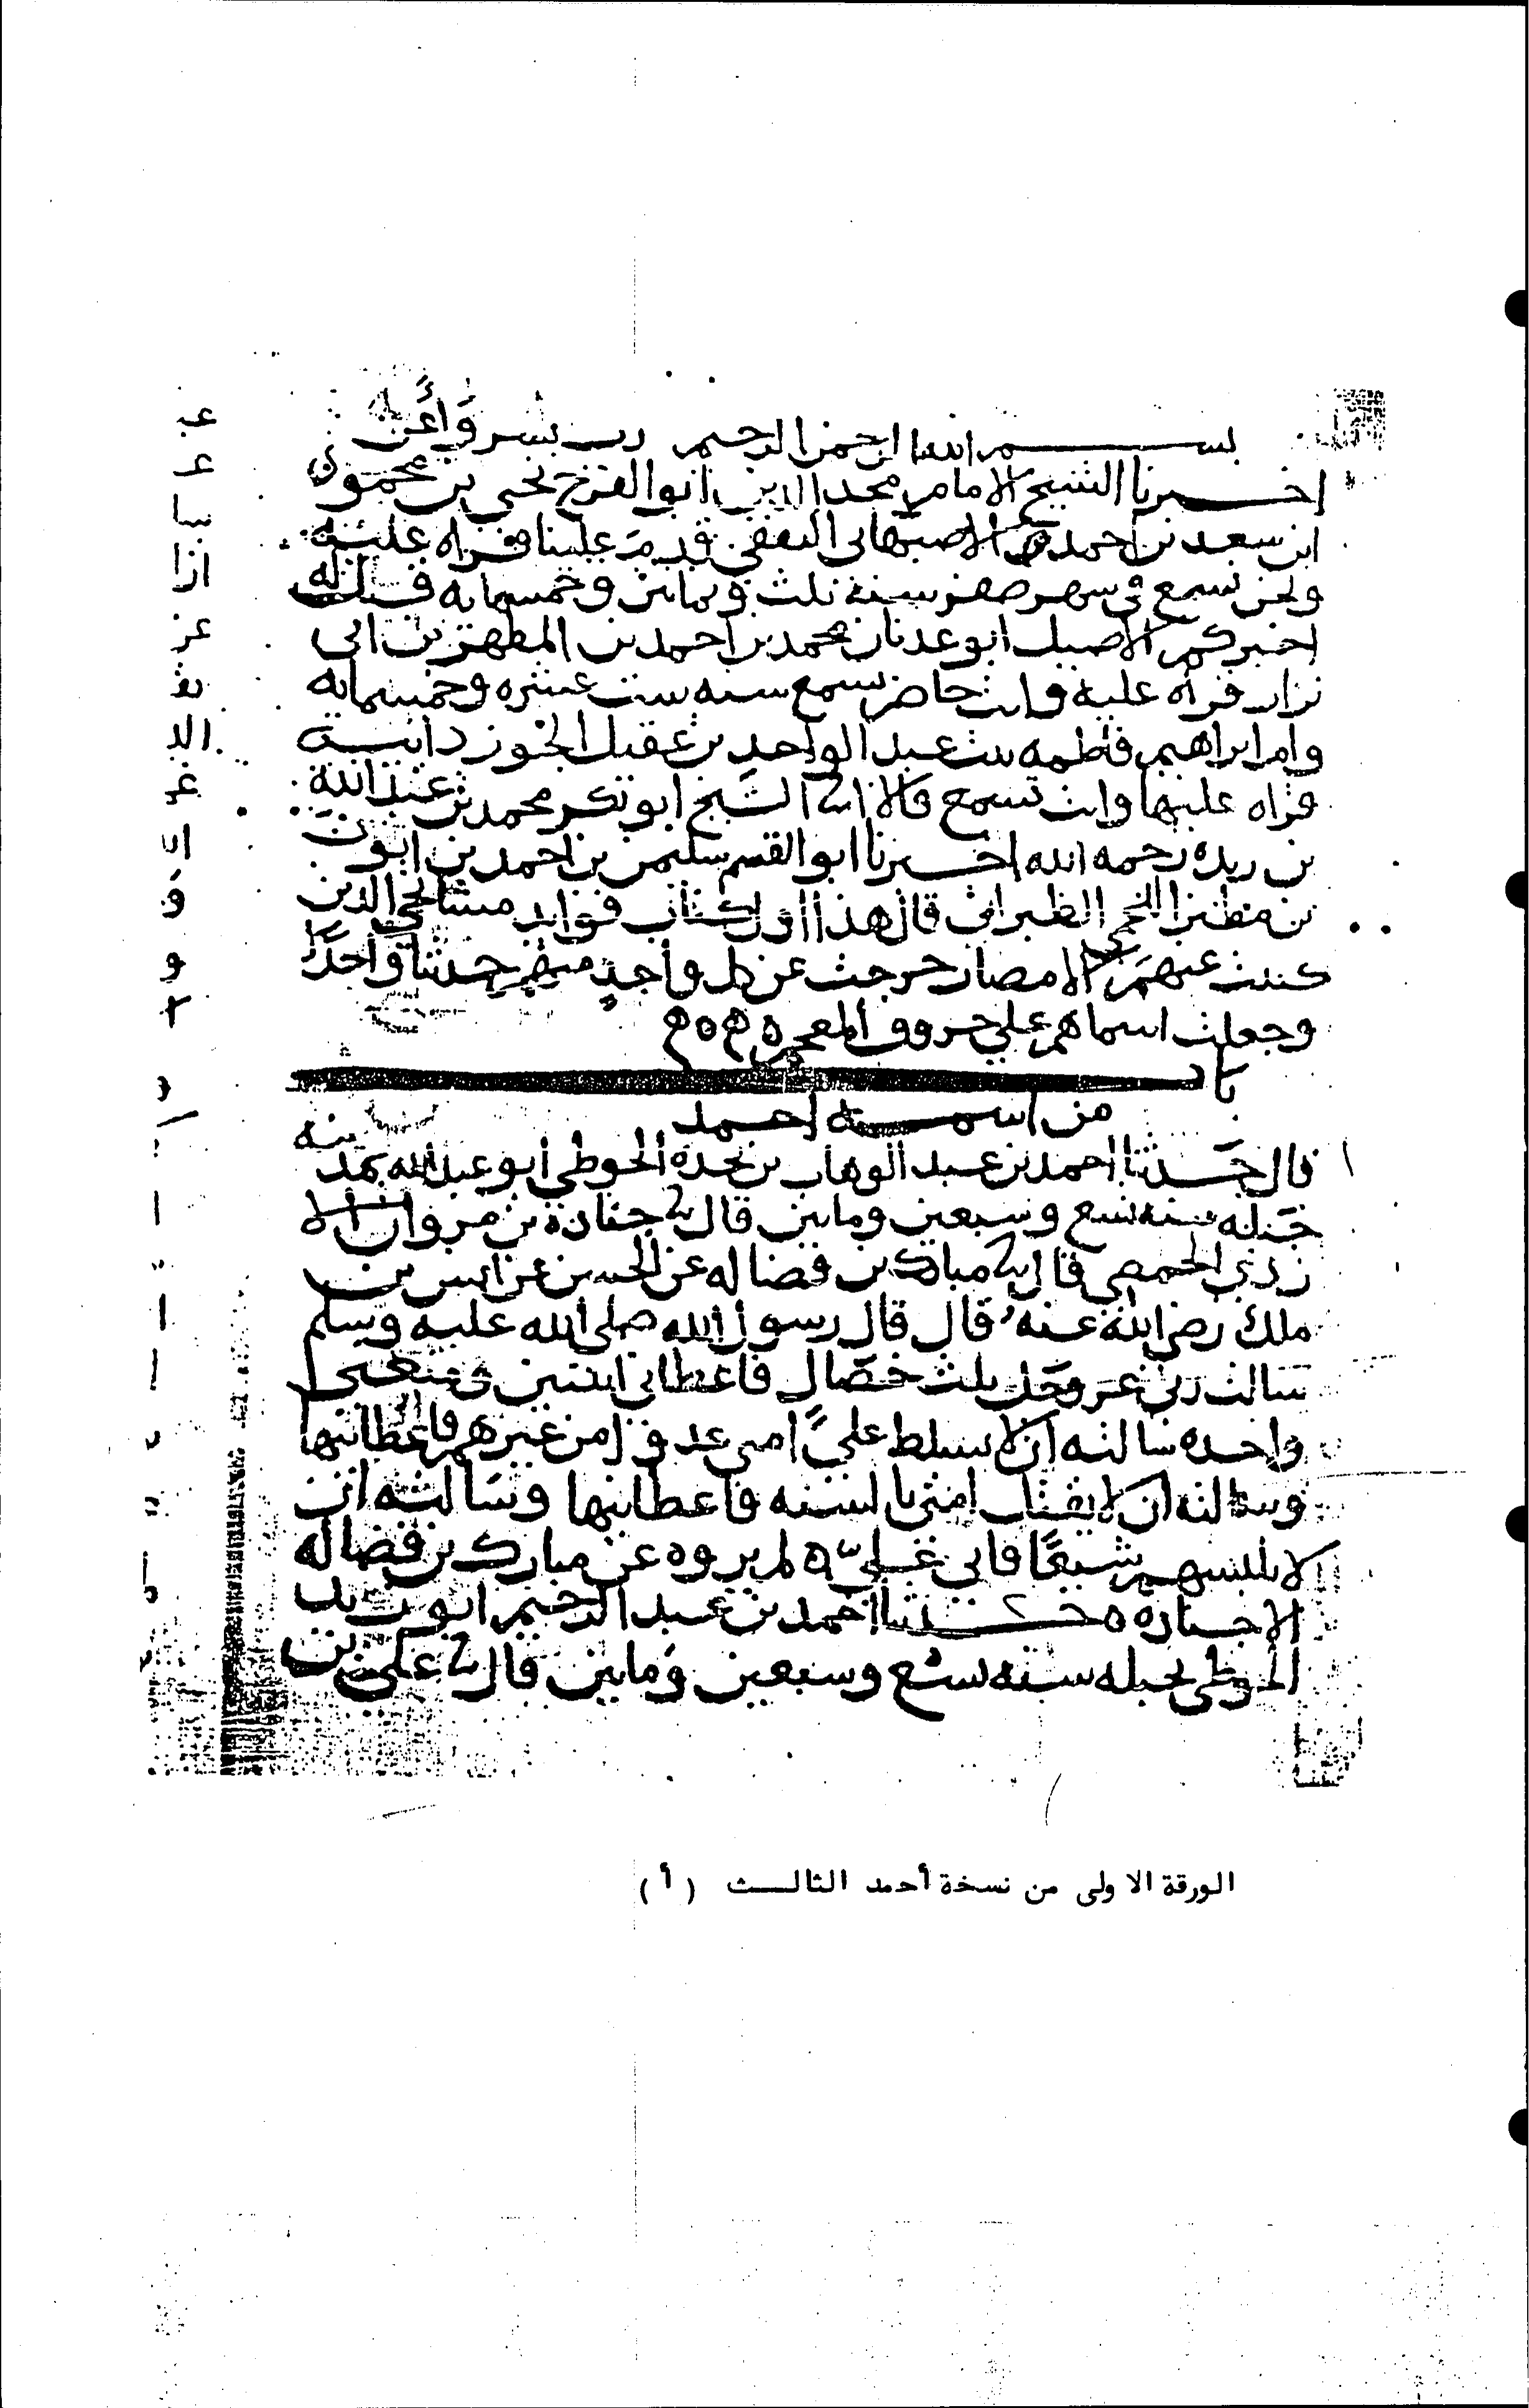 بسم الله الرحمن الرحيم رب يسر وأعن
اخبرنا الشيخ الامام مجد الدين ابو الفرج يحيى بن محمود
ابن سعد بن احمد الاصبهانى الثقفي قدم علينا قراه عليه
ونحن نسمع في شهر صفر سنة ثلث وثمانين وخمسمايه قيل له
اخبركم الاصيل ابو عدنان محمد بن احمد بن المطهر بن ابى
نزار قراه عليه وانت حاضر تسمع سنه ست عشره وخمسمايه
وام ابراهيم فاطمه بنت عبد الواحد بن عقيل الجوزدانية
قراه عليها وانت تسمع قالا انا الشيخ ابو بكر محمد بن عبد الله
بن ريده رحمه الله اخبرنا ابو القسم سليمن بن احمد بن ايوب
بن مطير اللخمي الطبرانى قال هذا اول كتاب فوايد مشايخي الذين
كتبت عنهم بالامصار خرجت عن كل واحد منهم حديثا واحدا
وجعلت اسماهم علي حروف المعجم ه ه ه
باب
من اسمه احمد
قال حدثنا احمد بن عبد الوهاب بن نجدة الحوطي ابو عبد الله بمدينه
جبله سنه تسع وسبعين ومايتين قال ثنا جنادة بن مروان الا
زدي الحمصي قال ثنا مبارك بن فضاله عن الحسن عن انس بن
ملك رضي الله عنه قال قال رسول الله صلى الله عليه وسلم
سالت ربي عز وجل ثلث خصال فاعطاني اثنتين ومنعني
واحده سالته ان لا يسلط علي امتي عدوا من غيرهم فاعطانيها
وسالته ان لا يقتل امتي بالسنه فاعطانيها وسالته ان
لا يلبسهم شيعا فابى علي ه لم يروه عن مبارك بن فضاله
الا جناده ه حدثنا احمد بن عبد الرحيم ابو زيد
الحوطي بجبله سنه تسع وسبعين ومايتين قال ثنا علي بن
الورقة الا ولى من نسخة أحمد الثالث (أ)